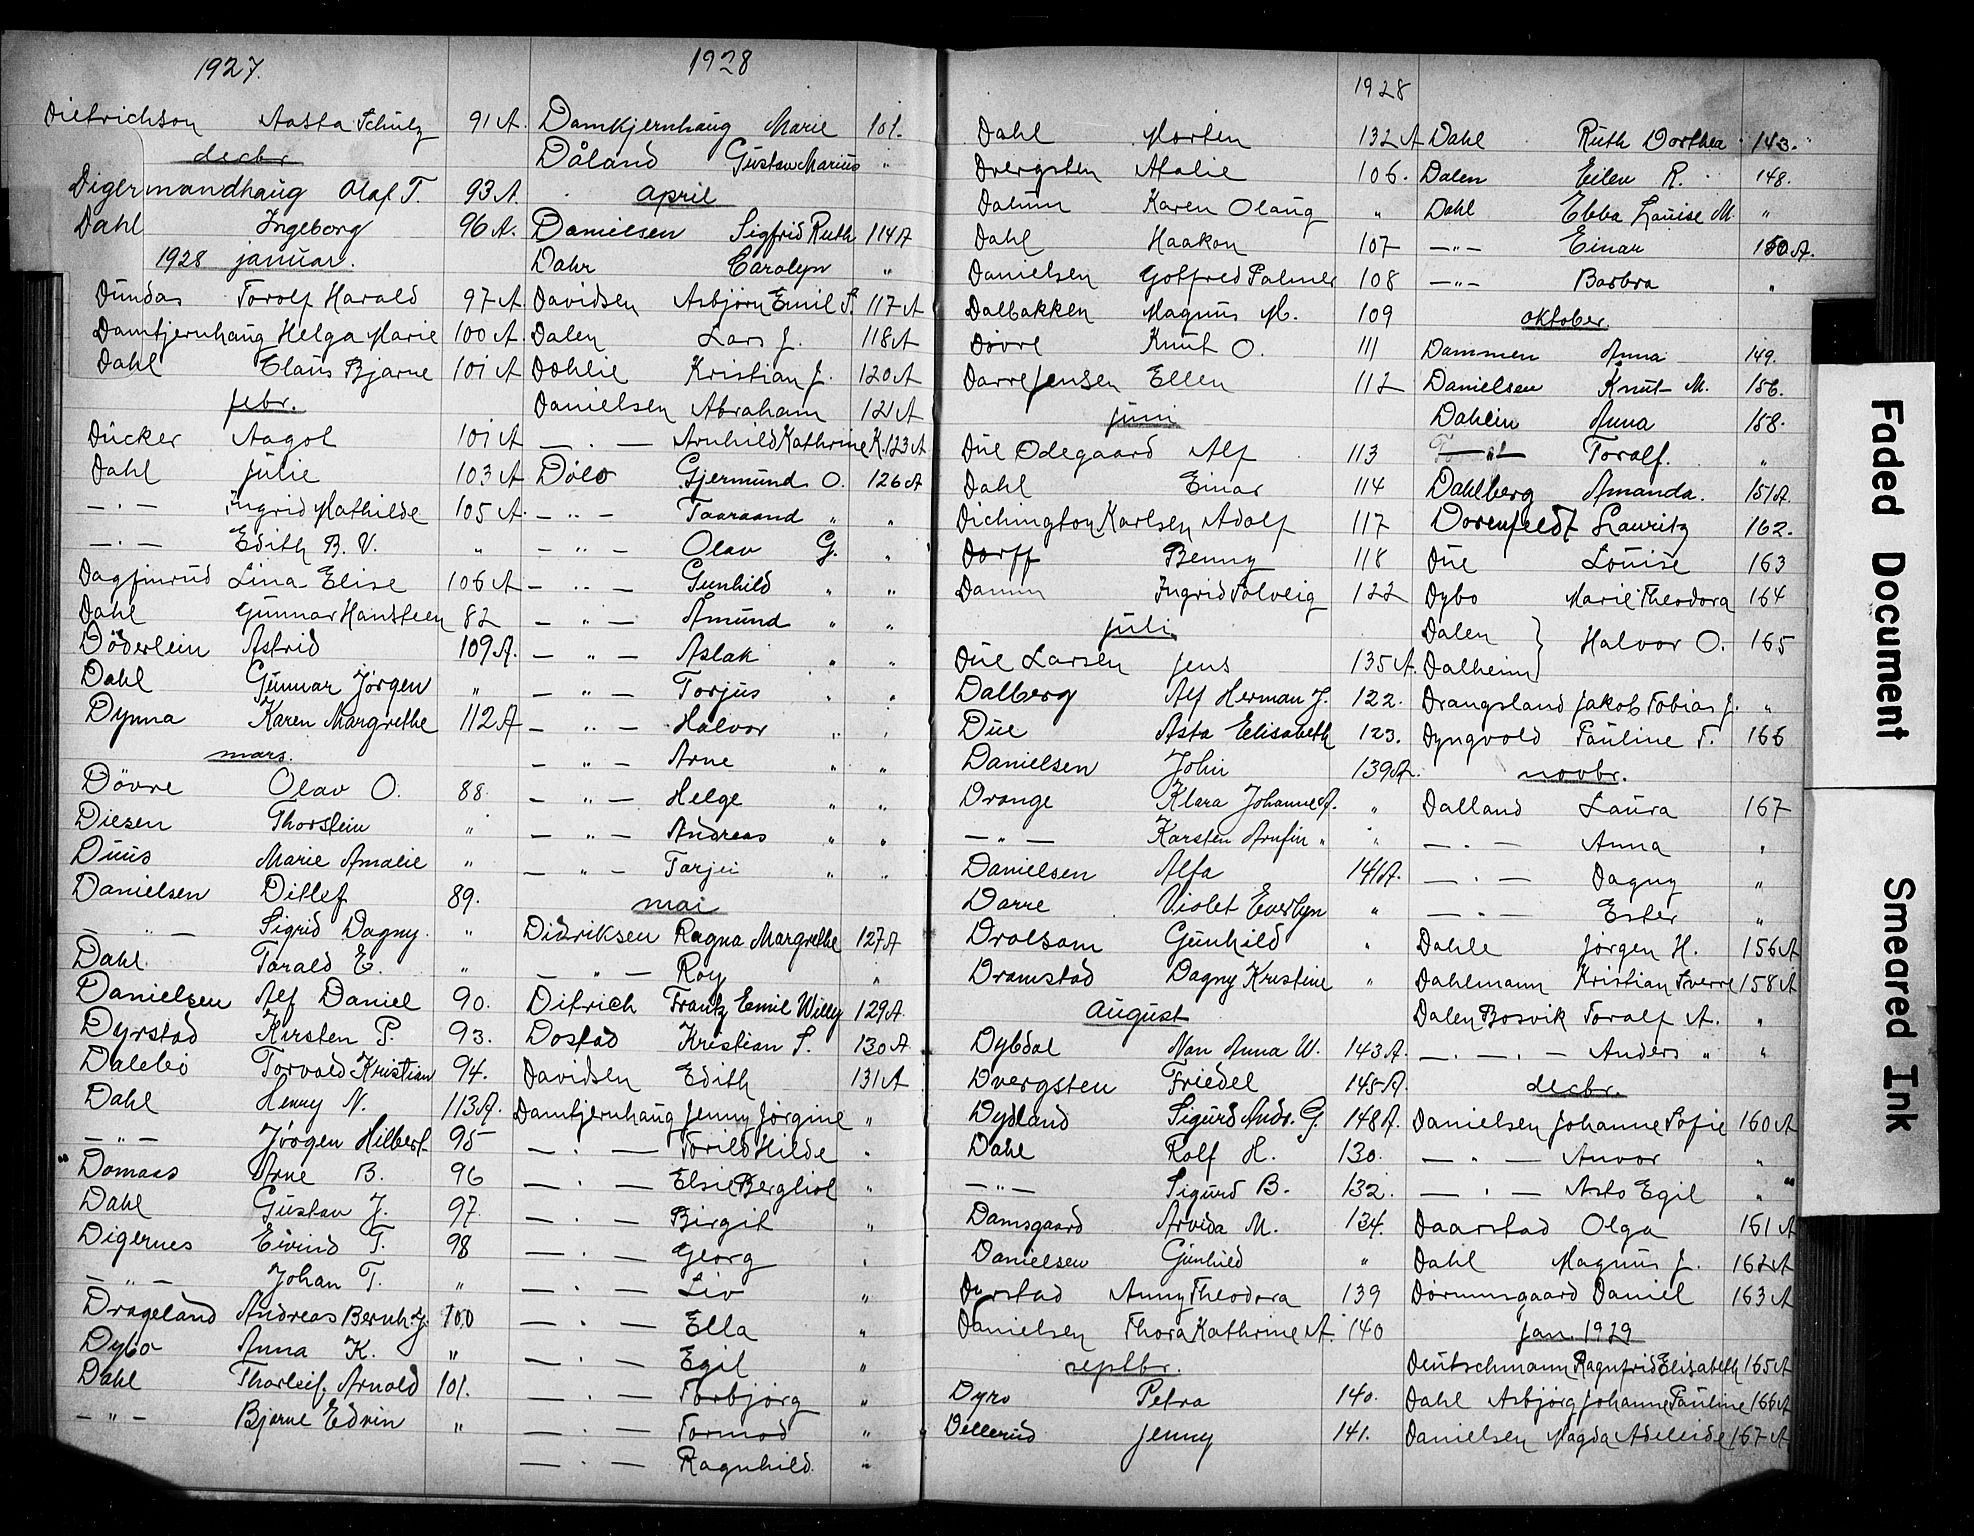 1927.
Dietrichson Aasta Schulz 91 A.
decbr
Digermandhaug Olaf T. 93 A.
Dahl Ingeborg 96 A.
1928 januar.
Dundas Torolf Harald 97 A
Damtjernhaug Helga Marie 100 A
Dahl Claus Bjarne 101 A
febr.
Dücker Aagot 101 A
Dahl Julie 103 A
— " — Ingrid Mathilde 105 A.
— " — Edith B. V. "
Dagfinrud Lina Elise 106 A
Dahl Gunnar Hansteen 82
Döderlein Astrid 109 A.
Dahl Gunnar Jørgen "
Dynna Karen Margrethe 112 A
mars.
Døvre Olav O. 88.
Diesen Thorstein "
Duus Marie Amalie "
Danielsen Ditlef 89.
— " — Sigrid Dagny. "
Dahl Tarald E. "
Danielsen Alf Daniel 90.
Dyrstad Kirsten P. 93.
Dalebø Torvald Kristian 94.
Dahl Henry N. 113 A.
— " — Jörgen Hilbert 95
Domaas Arne B. 96
Dahl Gustav J. 97.
Digernes Eivind T. 98
— " — Johan T. "
Drageland Andreas Bernh. J. 100
Dybo Anna K. "
Dahl Thorleif Arnold 101.
— " — Bjarne Edvin "
1928
Damkjernhaug Marie 101.
Dåland Gustav Marius "
April
Danielsen Sigfrid Ruth 114 A
Dahr Carolyn "
Davidsen Asbjørn Emil S. 117 A
Dalen Lars J. 118 A
Dahlie Kristian J. 120 A
Danielsen Abraham 121 A
— " — Arnhild Kathrine K. 123 A
Døle Gjermund O. 126 A
— " — Taaraand " "
— " — Olav G. "
— " — Gunhild " "
— " — Amund " "
— " — Aslak " "
— " — Torjus " "
— " — Halvor " "
— " — Arne " "
— " — Helge " "
— " — Andreas " "
— " — Tarjei " "
mai
Didriksen Ragna Margrethe 127 A
— " — Roy "
Ditrich Frantz Emil Willy 129 A
Dostad Kristian S. 130 A
Davidsen Edith 131 A
Damtjernhaug Jenny Jørgine "
— " — Torild Hilde "
— " — Elsie Bergliot "
— " — Birgit "
— " — Georg "
— " — Liv "
— " — Ella "
— " — Egil "
— " — Torbjørg "
— " — Tormod "
— " — Ragnhild "
1928
Dahl Morten 132 A
Dvergsten Atalie 106.
Dalum Karen Olaug "
Dahl Haakon 107
Danielsen Gotfred Palmer 108
Dalbakken Magnus M. 109
Døvre Knut O. 111
Darre Jensen Ellen 112
juni
Due Odegaard Alf 113
Dahl Einar 114
Dichington Karlsen Adolf 117
Dorff Benny 118
Damm Ingrid Solveig 122
juli
Due Larsen Jens 135 A.
Dalberg Alf Herman J. 122.
Due Asta Elisabeth 123.
Danielsen John 139 A.
Drange Klara Johanne A. "
— " — Karsten Arnfin " "
Danielsen Alfa 141 A.
Darre Violet Everlyn "
Dralsom Gunhild "
Dramstad Dagny Kristine "
August
Dybdal Nan Anna W. 143 A.
Dvergsten Friedel 145 A.
Dydland Sigurd Andr. G. 148 A.
Dahl Rolf H. 130.
— " — Sigurd B. 132.
Damsgaard Arvida M. 134.
Danielsen Gunhild "
Dyrstad Anny Theodora 139
Danielsen Thora Kathrine A. 140
septbr.
Dyrø Petra 140.
Dellerud Jenny 141.
Dahl Ruth Dorthea 143.
Dalen Eilen R. 148.
Dahl Ebba Louise M. "
— " — Einar 150 A.
— " — Barbra "
oktober.
Dammen Anna 149.
Danielsen Knut M. 156.
Dahlin Anna 158.
— " — Toralf. "
Dahlberg Amanda. 151 A.
Dorenfeldt Lauritz 162.
Due Louise 163
Dybo Marie Theodora 164
Dalen } Halvor O. 165
Dalheim }
Drangsland Jakob Tobias J. "
Dyngvold Pauline T. 166
novbr.
Dalland Laura 167
— " — Anna "
— " — Dagny "
— " — Ester "
Dahle Jørgen H. 156 A
Dahlmann Kristian Sverre 158 A
Dalen Bosvik Toralf A. "
— " — " — Anders " "
decbr.
Danielsen Johanne Sofie 160 A
— " — Anvor "
— " — Asto Egil "
Daarstad Olga 161 A
Dahl Magnus J. 162 A
Dørumsgaard Daniel 163 A
jan 1929
Deutschmann Ragnfrid Elisabeth 165 A
Dahl Asbjørg Johanne Pauline 166 A
Danielsen Magda Adeleide 167 A
Faded Document
Smeared Ink